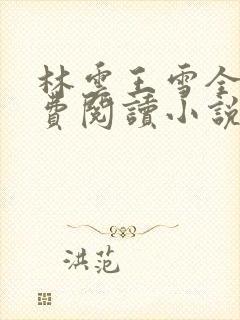 林雲王雪全
費閱讀小說
洪范